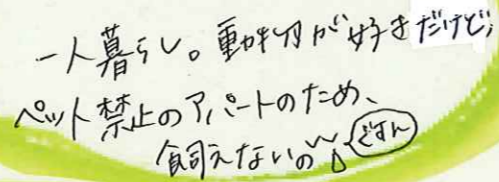 一人暮らし。動物が好きだけど、
ペット禁止のアパートのため、
飼えないの〜
ぐすん